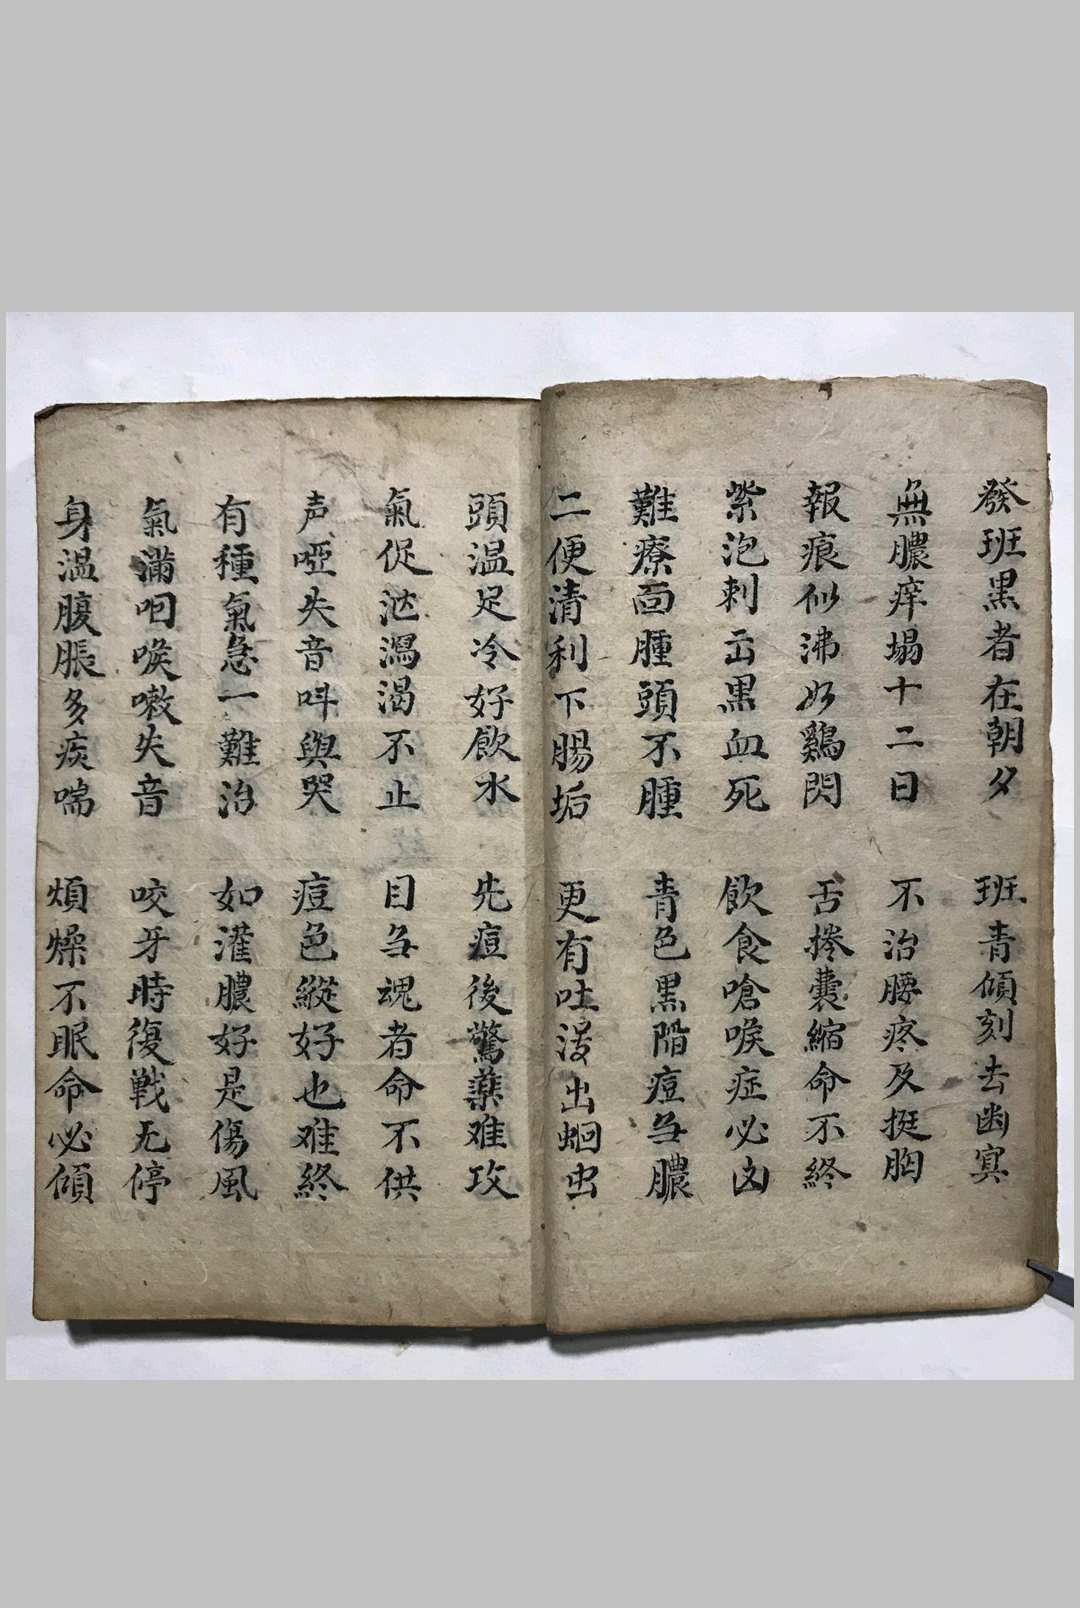 發班黒者在朝夕 班青傾刻去幽冥
無膿痒塌十二日 不治腰疼及挺胸
報痕似沸如鷄閃 舌捲囊縮命不終
紫泡刺出黒血死 飲食嗆喉症必凶
難療面腫頭不腫 青色黒陷痘多膿
二便清利下腸垢 更有吐瀉出蛔虫
頭温足冷好飲水 先痘後驚藥难攻
氣促泄瀉渴不止 目多魂者命不供
声啞失音呌與哭 痘色縱好也难終
有種氣急一難治 如灌膿好是傷風
氣滿咽喉嗽失音 咬牙時復戦无停
身温腹脹多痰喘 煩燥不眠命必傾